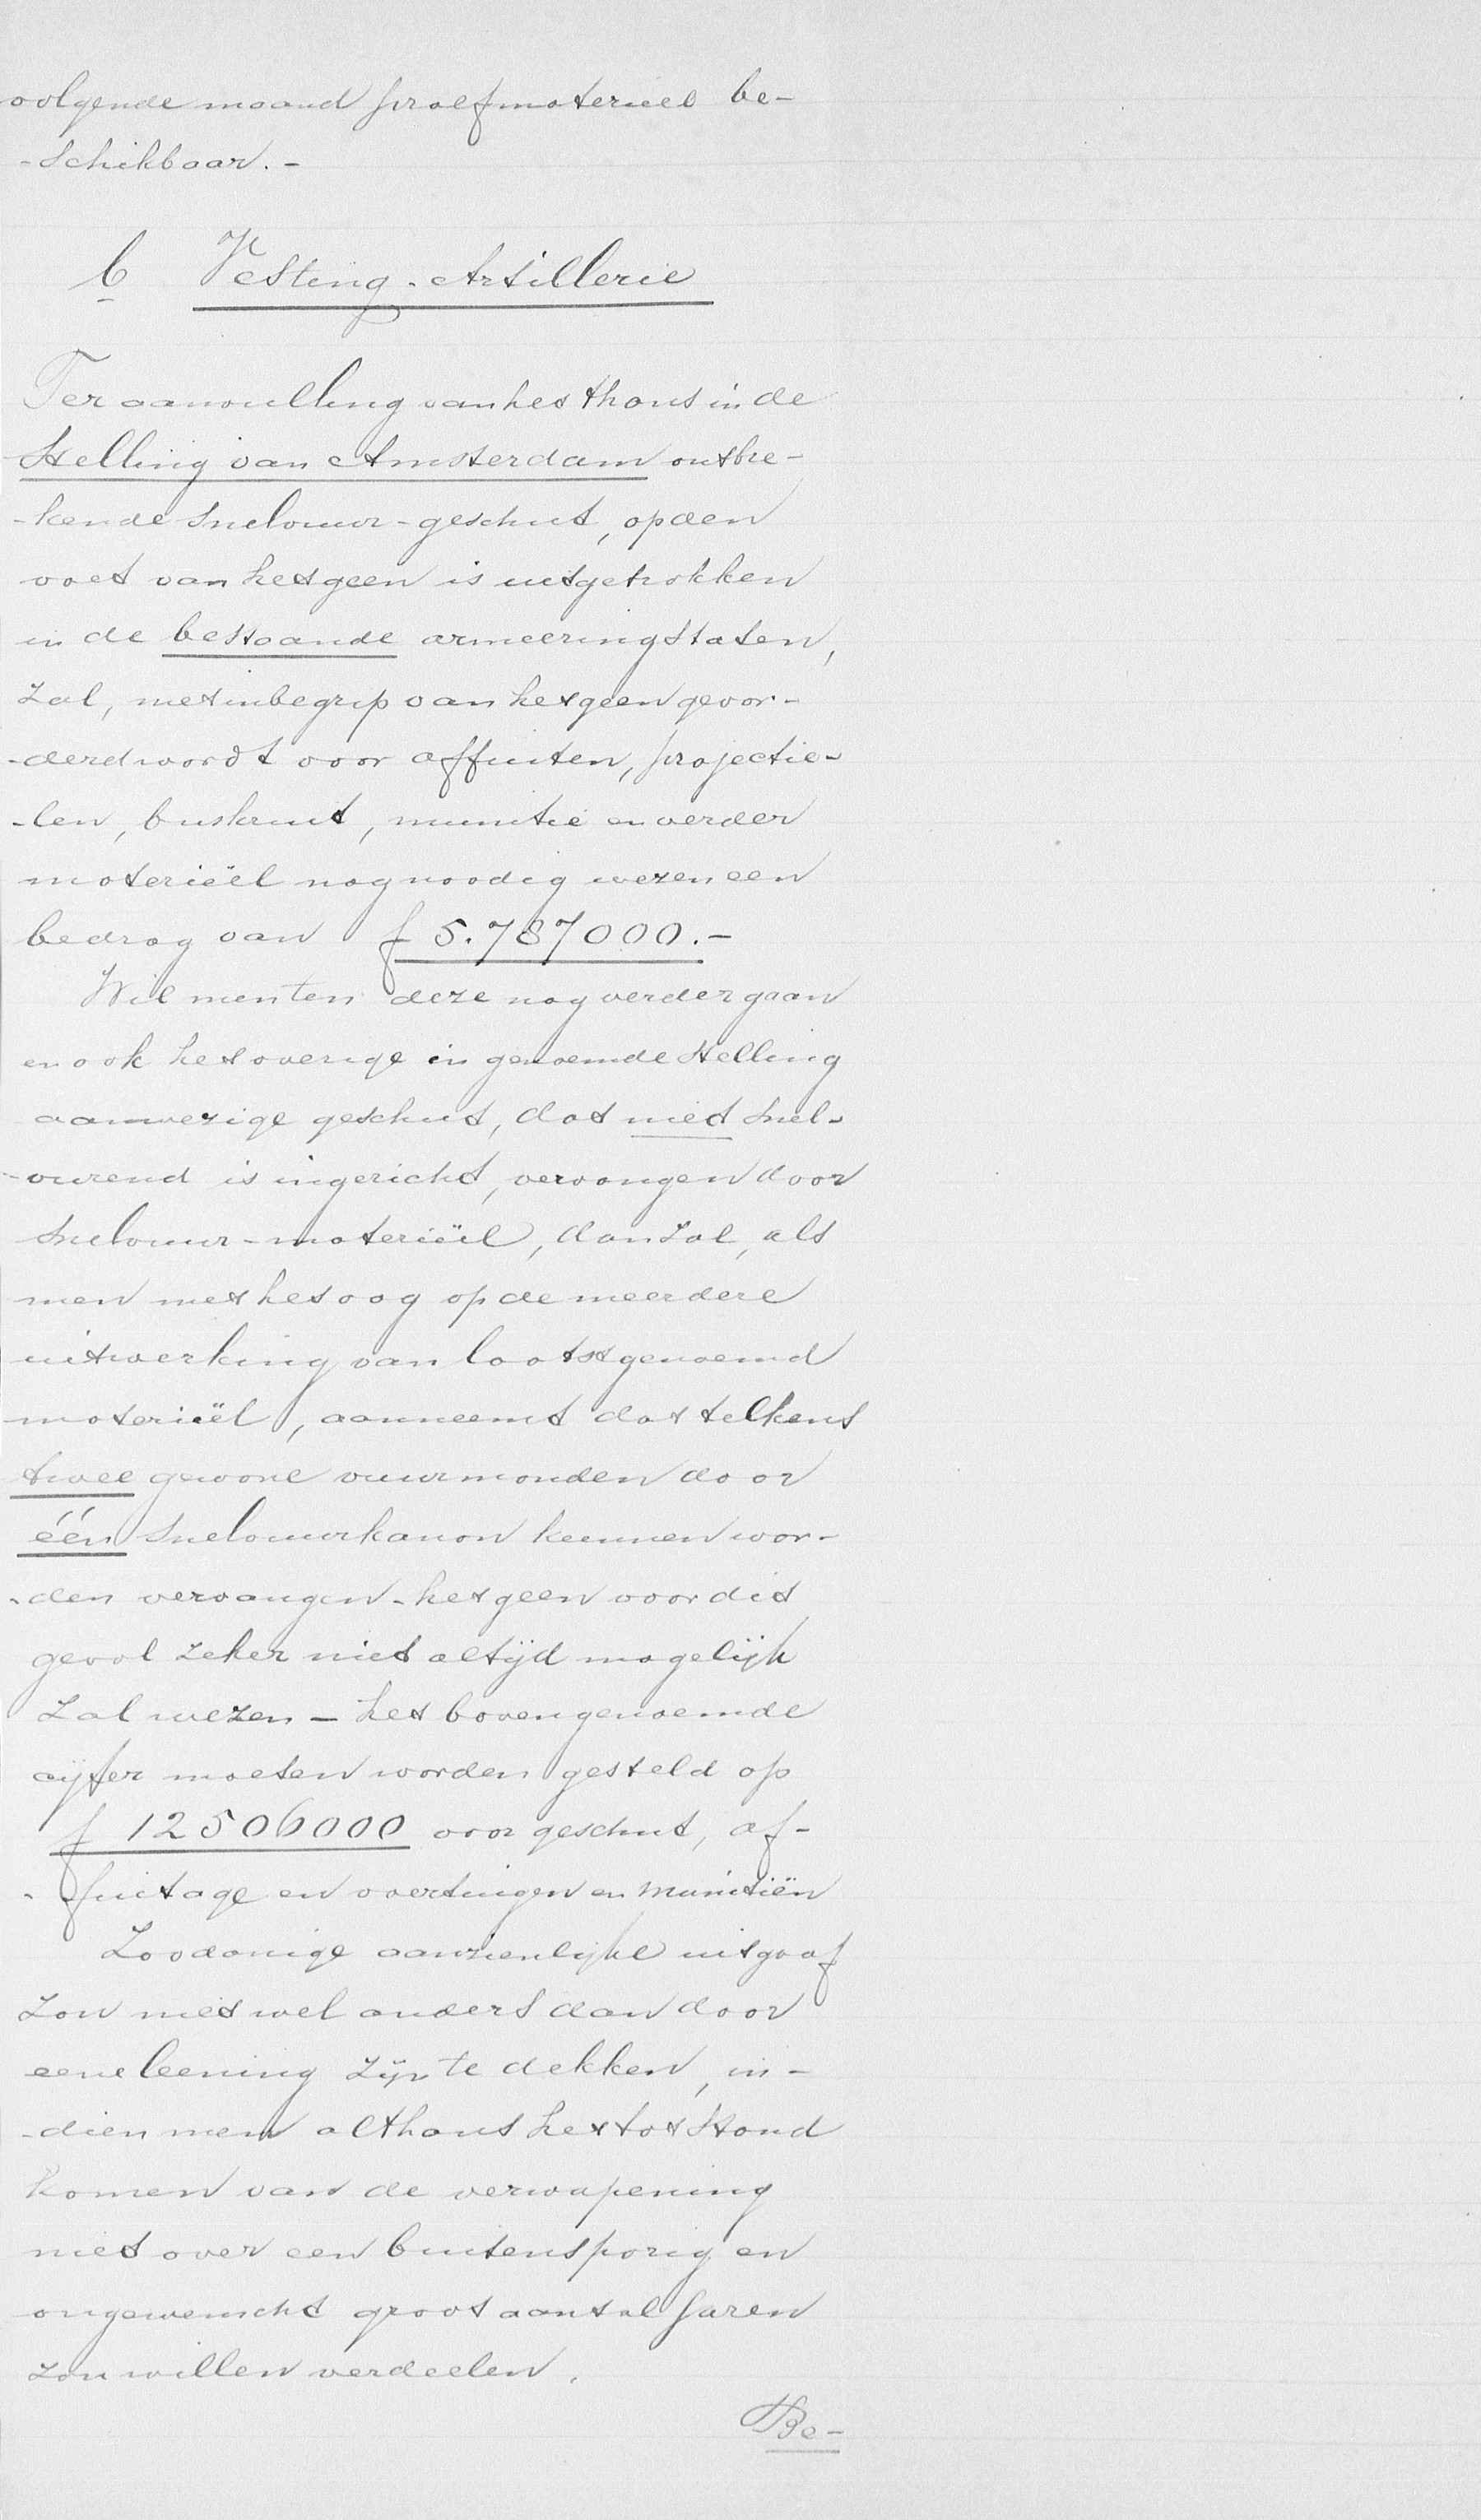 volgende maand proefmaterieel be-
-schikbaar. -
b Vesting-Artillerie
Ter aanvulling van het thans in de
Stelling van Amsterdam ontbre-
-kende snelvuur-geschut, op den
voet van hetgeen is uitgetrokken
in de bestaande armeeringstaten,
zal, met inbegrip van hetgeen gevor-
-derd wordt voor affuiten, projectie-
-len, buskruit, munitie en verder
materiëel nog noodig wezen een
bedrag van f 5.787000.-
Wil men ten deze nog verder gaan
en ook het overige in genoemde Stelling
aanwezige geschut, dat niet snel-
-vurend is ingericht, vervangen door
snelvuur-materiëel, dan zal, als
men met het oog op de meerdere
uitwerking van laatstgenoemd
materiëel, aanneemt dat telkens
twee gewone vuurmonden door
één snelvuurkanon kunnen wor-
-den vervangen - hetgeen voor dit
geval zeker niet altijd mogelijk
zal wezen - het bovengenoemde
cijfer moeten worden gesteld op
f 12506000 voor geschut, af-
-fuitage en voertuigen en munitiën
Zoodanige aanzienlijke uitgaaf
zou niet wel anders dan door
eene leening zijn te dekken, in-
-dien men althans het tot stand
komen van de verwapening
niet over een buitensporig en
ongewenscht groot aantal jaren
zou willen verdeelen.
Be-